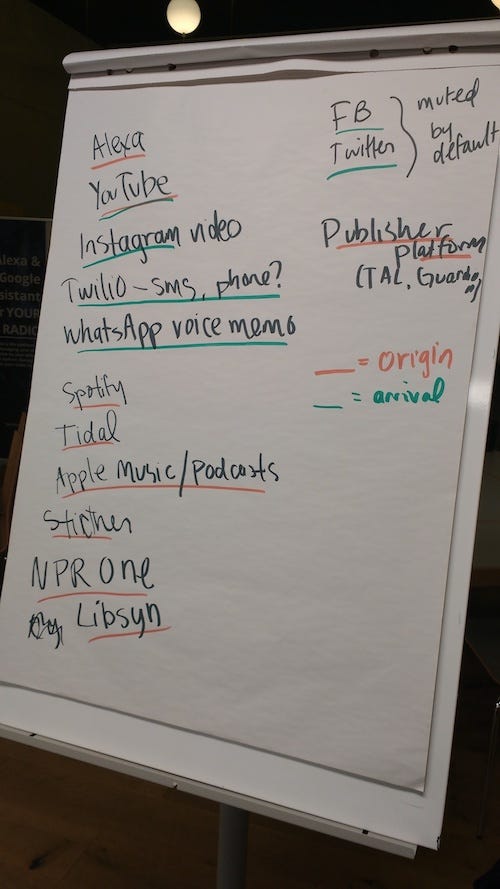 Alexa
YouTube
Instagram video
Twilio - sms, phone?
WhatsApp voice memo
Spotify
Tidal
Apple Music/podcasts
Sticher
NPR One
Libsyn
FB
Twitter
muted
by
default
Publisher
platform
(TAL, Guardian)
___ = origin
__ = arrival
Alexa &
Google
RADIO